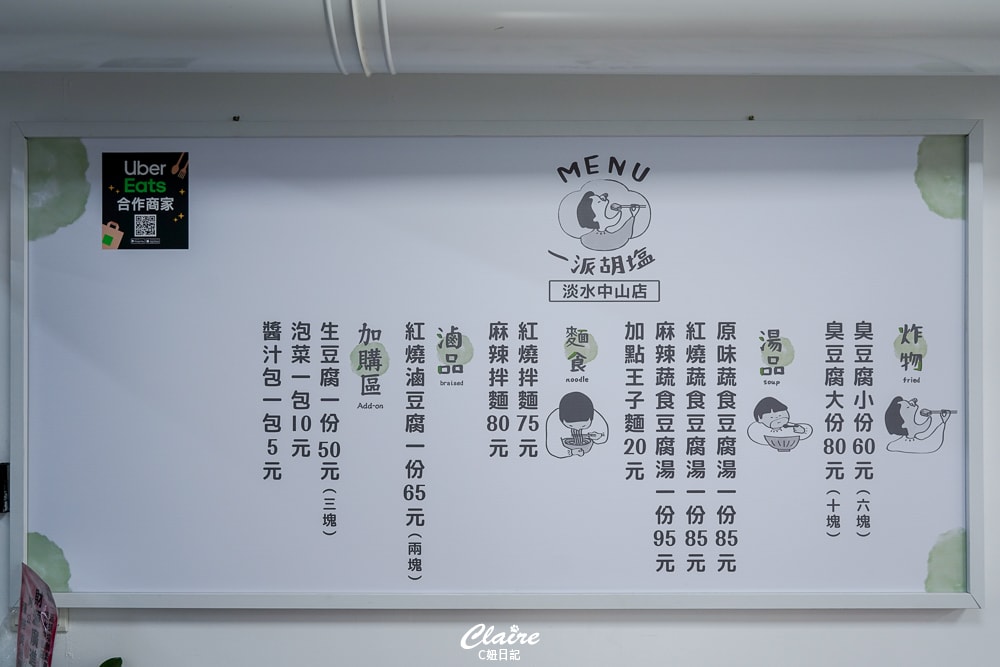 Uber
Eats
合作商家
MENU
一派胡塩
淡水中山店
炸物
fried
臭豆腐小份60元(六塊)
臭豆腐大份80元(十塊)
湯品
soup
原味蔬食豆腐湯一份85元
紅燒蔬食豆腐湯一份85元
麻辣蔬食豆腐湯一份95元
加點王子麵20元
麵食
noodle
紅燒拌麵75元
麻辣拌麵80元
滷品
braised
紅燒滷豆腐一份65元(兩塊)
加購區
Add-on
生豆腐一份50元(三塊)
泡菜一包10元
醬汁包一包5元
Claire
C妞日記